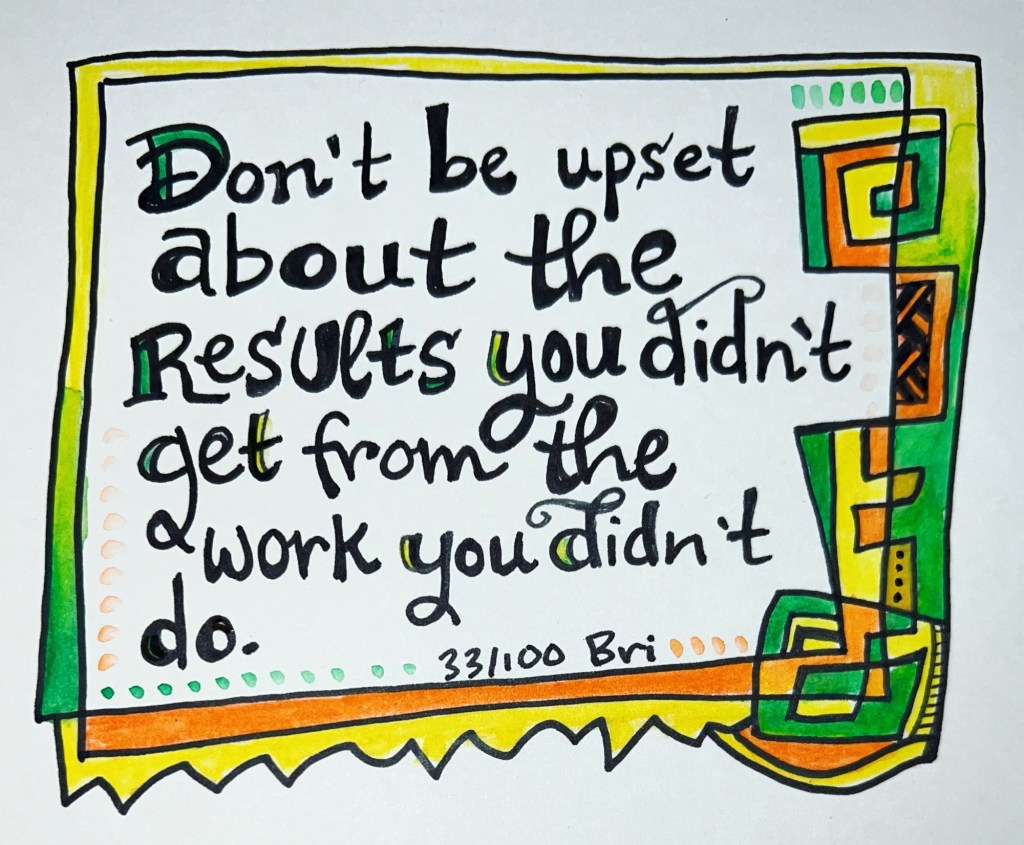 Don't be upset
about the
Results you didn't
get from the
work you didn't
do.
33/100 Bri